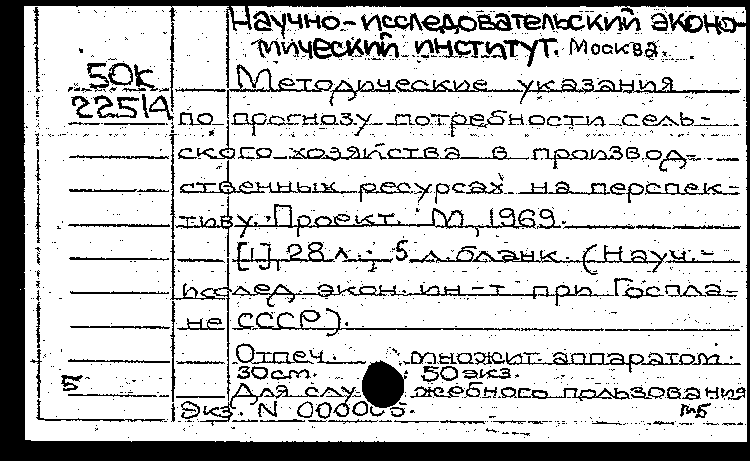 Научно-исследовательский эконо-
мический институт. Москва.
50К
225/4
Методические указания
по прогнозу потребности сель-
ского хозяйства в производ-
ственных ресурсах на перспек-
тиву. Проект. М, 1969.
[1], 28 л.; 5 л. бланк. (Науч.-
исслед. экон. ин-т при Госпла-
не СССР).
Отпеч. множит. аппаратом.
30 см. 50 экз.
Для служебного пользования
Экз. N 000005.